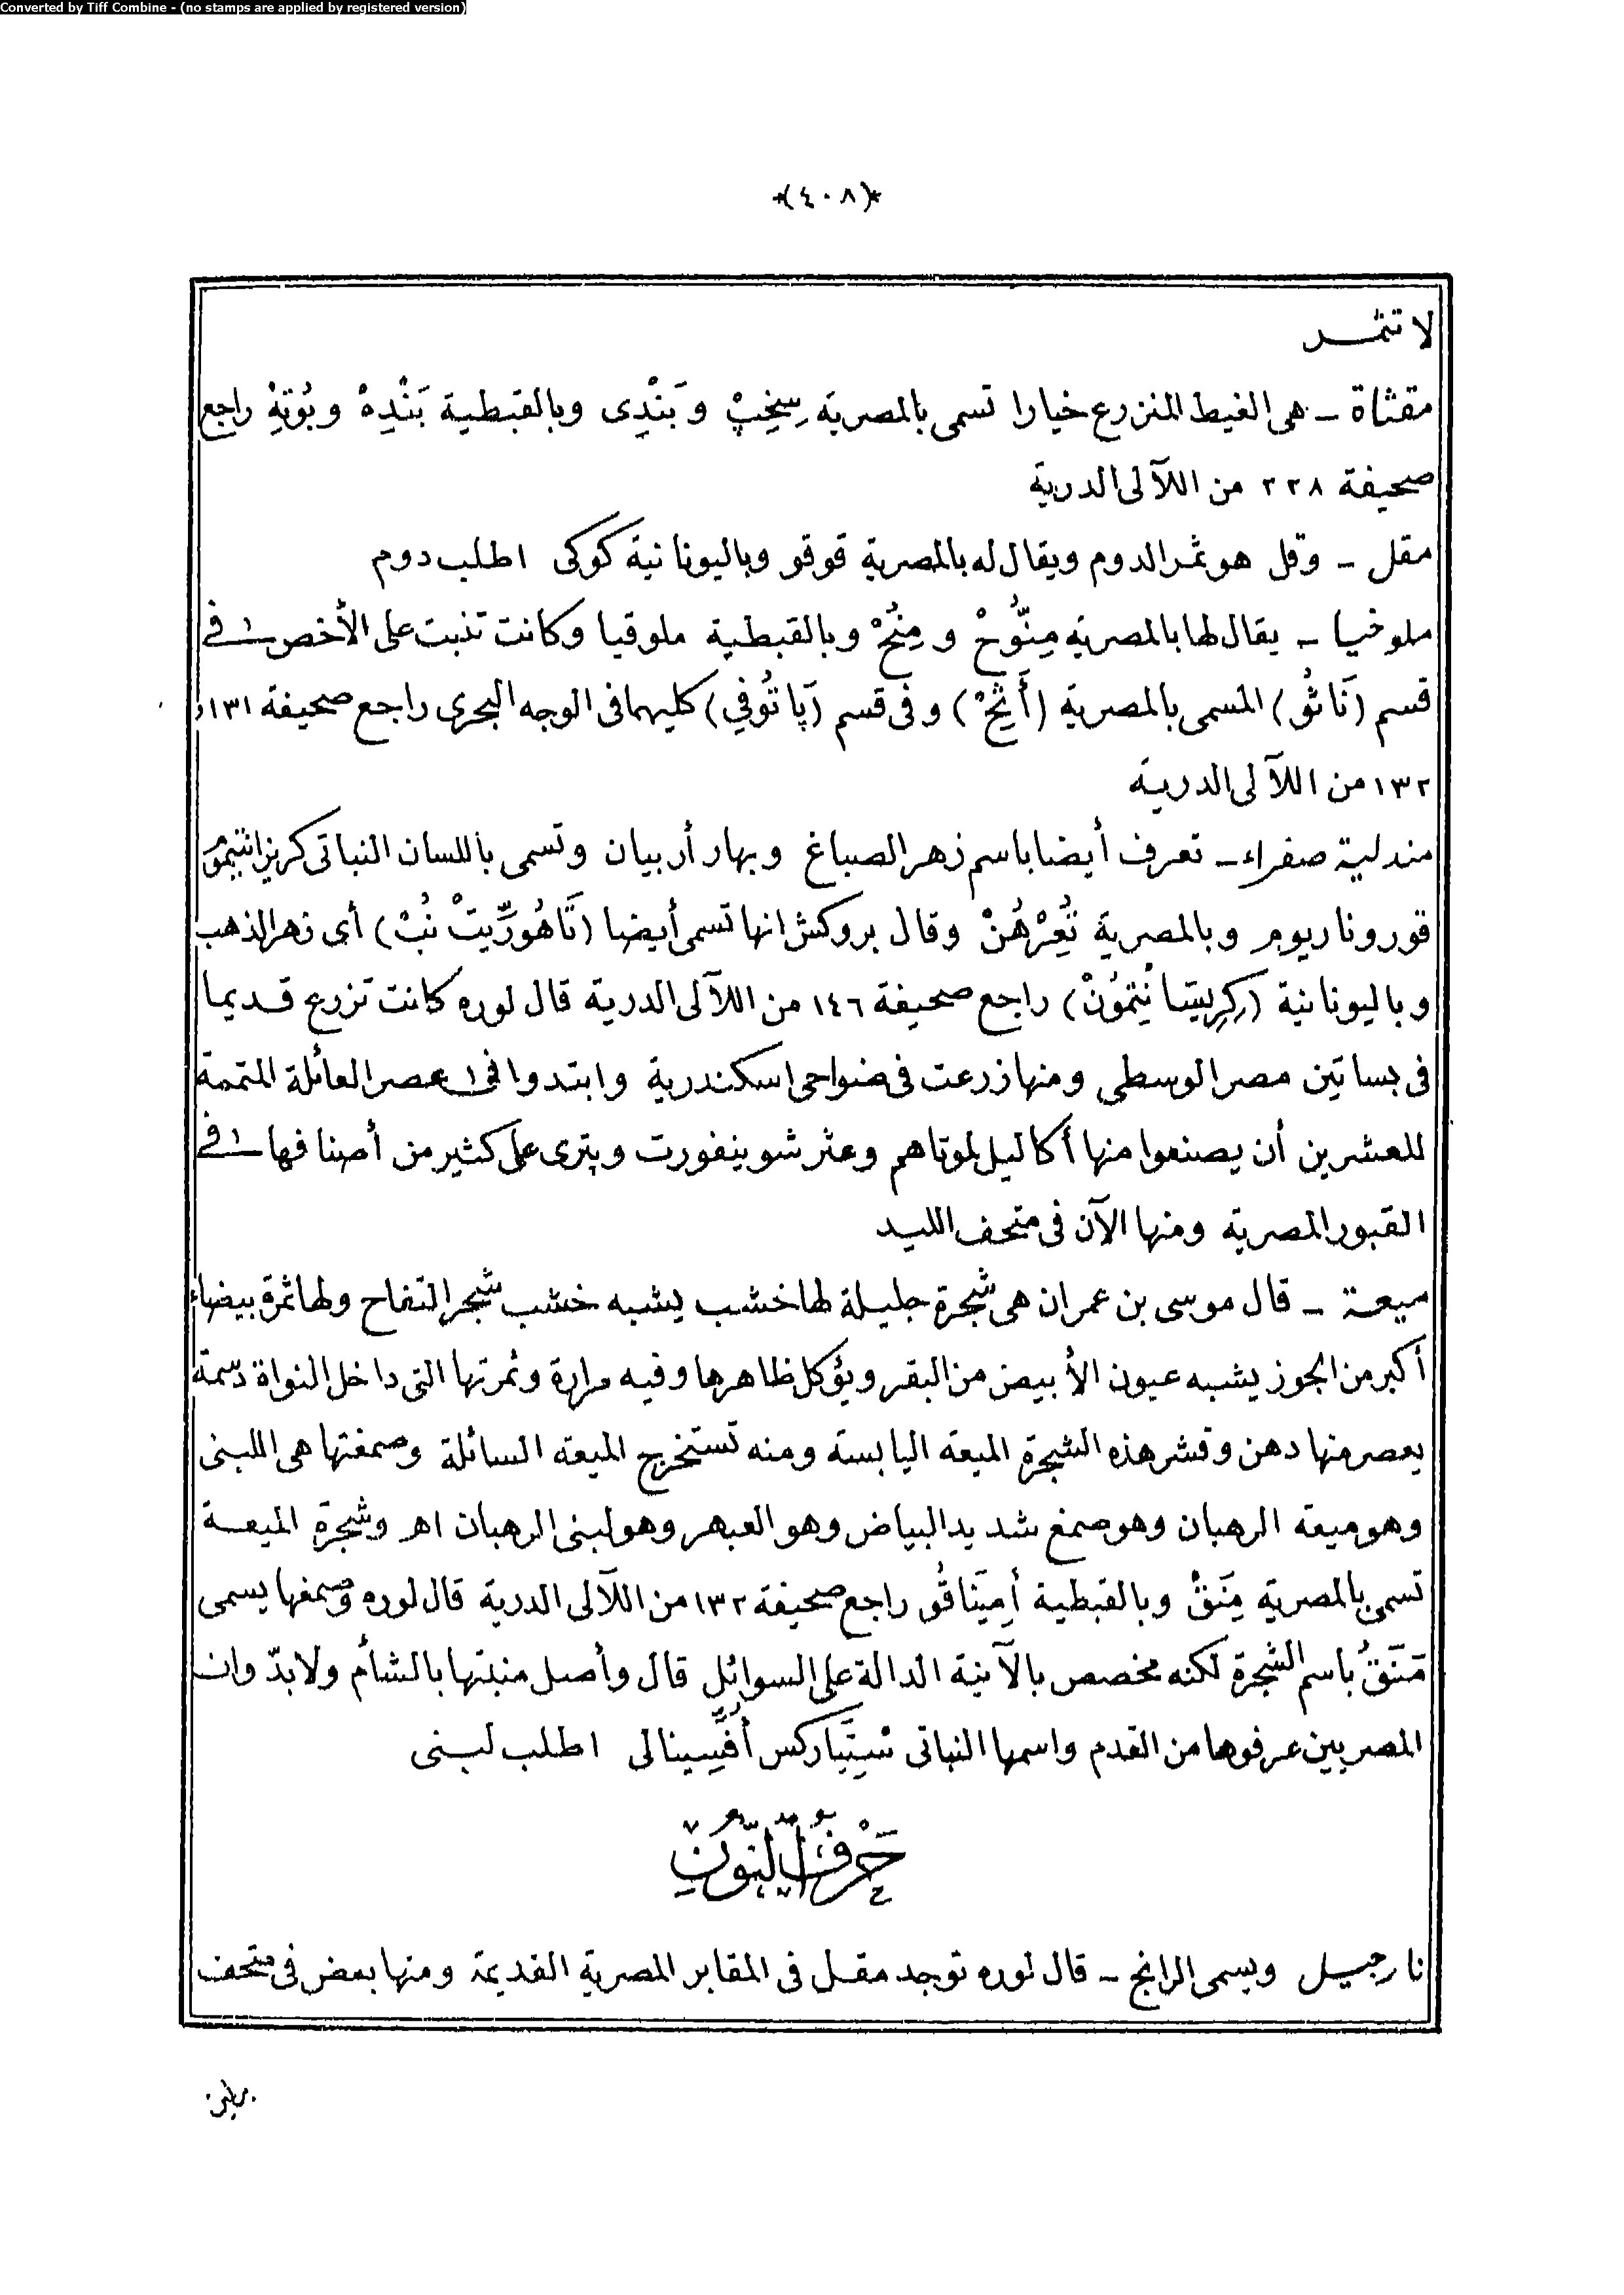 Converted by Tiff Combine - (no stamps are applied by registered version)
*(٤٠٨)*
لا تثمر
مقثاة – هى الغيط المنزرع خيارا تسمى بالمصرية سِخِپْ و بَنْدِى وبالقبطية بَنْدِهْ و بُوتِهْ راجع
صحيفة ٢٢٨ من اللآلى الدرية
مقل – وقل هو ثمر الدوم ويقال له بالمصرية قوقو وباليونانية كوكى اطلب دوم
ملوخيا – يقال لها بالمصرية مِنُّوحْ و مِنُحْ وبالقبطية ملوقيا وكانت تنبت على الأخص فى
قسم (نَاثُو) المسمى بالمصرية (أَثِحْ) وفى قسم (پَاتُوفِى) كليهما فى الوجه البحرى راجع صحيفة ١٣١و
١٣٢ من اللآلى الدرية
مندلية صفراء – تعرف أيضا باسم زهر الصباغ وبهار أربيان وتسمى باللسان النباتى كريزانتيموم
قوروناريوم وبالمصرية تُعِرْهُنْ وقال بروكش انها تسمى أيضا (تَاهُورِّيتْ نُبْ) أى زهر الذهب
وباليونانية (كِرِيسَانْتِمُونْ) راجع صحيفة ١٤٦ من اللآلى الدرية قال لوره كانت تزرع قديما
فى بساتين مصر الوسطى ومنها زرعت فى ضواحى اسكندرية وابتدوا فى عصر العائلة المتممة
للعشرين أن يصنعوا منها أكاليل لموتاهم وعثر شوينفورت وپترى على كثير من أصنافها فى
القبور المصرية ومنها الآن فى متحف الليد
ميعة – قال موسى بن عمران هى شجرة جليلة لها خشب يشبه خشب شجر التفاح ولها ثمرة بيضاء
أكبر من الجوز يشبه عيون الأبيض من البقر ويؤكل ظاهرها وفيه مرارة وثمرتها التى داخل النواة دسمة
يعصر منها دهن وقشر هذه الشجرة الميعة اليابسة ومنه تستخرج الميعة السائلة وصمغتها هى اللبنى
وهو ميعة الرهبان وهو صمغ شديد البياض وهو العبهر وهو لبنى الرهبان اهـ وشجرة الميعة
تسمى بالمصرية مِنَقْ وبالقبطية أمِينَاقُو راجع صحيفة ١٣٢ من اللآلى الدرية قال لوره وصمغها يسمى
مَنَقُ باسم الشجرة لكنه مخصص بالآنية الدالة على السوائل قال وأصل منبتها بالشأم ولابدّ وان
المصريين عرفوها من القدم واسمها النباتى سْتِيَّارَكس أُفِّسِينالى اطلب لبنى
حَرْفُ النُّونِ
نارجيل ويسمى الرانج – قال لوره توجد مقل فى المقابر المصرية القديمة ومنها بعض فى متحف